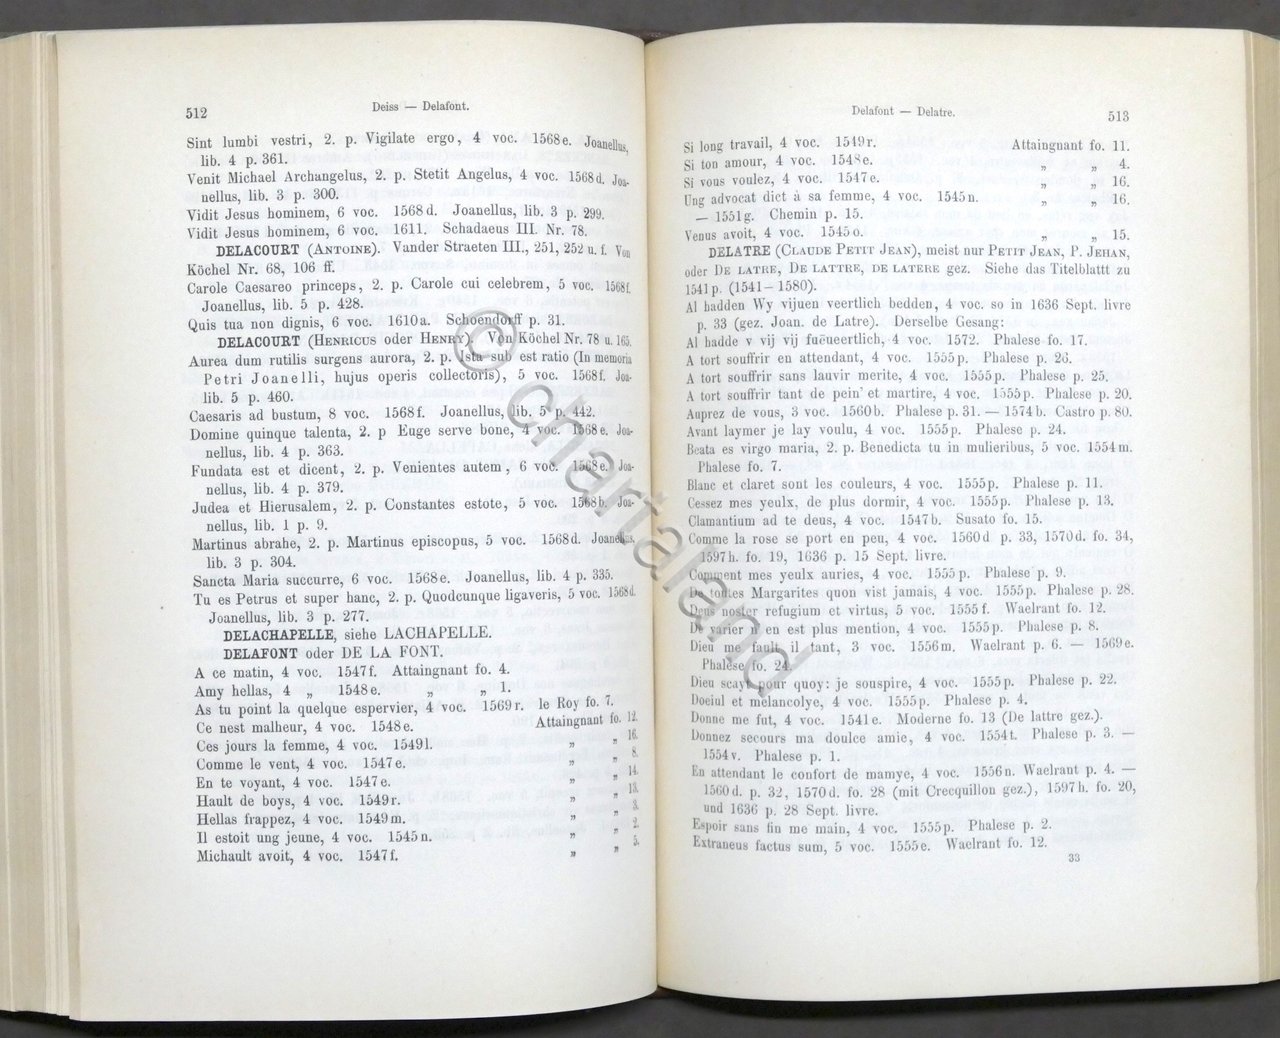 512
Deiss — Delafont.
Sint lumbi vestri, 2. p. Vigilate ergo, 4 voc. 1568e. Joanellus,
lib. 4 p. 361.
Venit Michael Archangelus, 2. p. Stetit Angelus, 4 voc. 1568d. Joa-
nellus, lib. 3 p. 300.
Vidit Jesus hominem, 6 voc. 1568d. Joanellus, lib. 3 p. 299.
Vidit Jesus hominem, 6 voc. 1611. Schadaeus III. Nr. 78.
DELACOURT (ANTOINE). Vander Straeten III., 251, 252 u. f. Von
Köchel Nr. 68, 106 ff.
Carole Caesareo princeps, 2. p. Carole cui celebrem, 5 voc. 1568f.
Joanellus, lib. 5 p. 428.
Quis tua non dignis, 6 voc. 1610a. Schoendorff p. 31.
DELACOURT (HENRICUS oder HENRY). Von Köchel Nr. 78 u. 165.
Aurea dum rutilis surgens aurora, 2. p. Ista sub est ratio (In memoria
Petri Joanelli, hujus operis collectoris), 5 voc. 1568f. Joa-
lib. 5 p. 460.
Caesaris ad bustum, 8 voc. 1568f. Joanellus, lib. 5 p. 442.
Domine quinque talenta, 2. p Euge serve bone, 4 voc. 1568e. Joa-
nellus, lib. 4 p. 363.
Fundata est et dicent, 2. p. Venientes autem, 6 voc. 1568e. Joa-
nellus, lib. 4 p. 379.
Judea et Hierusalem, 2. p. Constantes estote, 5 voc. 1568b. Joa-
nellus, lib. 1 p. 9.
Martinus abrahe, 2. p. Martinus episcopus, 5 voc. 1568d. Joanellus.
lib. 3 p. 304.
Sancta Maria succurre, 6 voc. 1568e. Joanellus, lib. 4 p. 335.
Tu es Petrus et super hanc, 2. p. Quodcunque ligaveris, 5 voc. 1568d.
Joanellus, lib. 3 p. 277.
DELACHAPELLE, siehe LACHAPELLE.
DELAFONT oder DE LA FONT.
A ce matin, 4 voc. 1547f. Attaingnant fo. 4.
Amy hellas, 4 „ 1548e. „ „ 1.
As tu point la quelque espervier, 4 voc. 1569r. le Roy fo. 7.
Ce nest malheur, 4 voc. 1548e. Attaingnant fo. 12.
Ces jours la femme, 4 voc. 1549l. „ „ 16.
Comme le vent, 4 voc. 1547e. „ „ 8.
En te voyant, 4 voc. 1547e. „ „ 14.
Hault de boys, 4 voc. 1549r. „ „ 13.
Hellas frappez, 4 voc. 1549m. „ „ 3.
Il estoit ung jeune, 4 voc. 1545n. „ „ 2.
Michault avoit, 4 voc. 1547f. „ „ 5.
Delafont — Delatre.
513
Si long travail, 4 voc. 1549r. Attaingnant fo. 11.
Si ton amour, 4 voc. 1548e. „ „ 4.
Si vous voulez, 4 voc. 1547e. „ „ 16.
Ung advocat dict à sa femme, 4 voc. 1545n. „ „ 16.
— 1551g. Chemin p. 15.
Venus avoit, 4 voc. 1545o. „ „ 15.
DELATRE (CLAUDE PETIT JEAN), meist nur PETIT JEAN, P. JEHAN,
oder DE LATRE, DE LATTRE, DE LATERE gez. Siehe das Titelblattt zu
1541p. (1541—1580).
Al hadden Wy vijuen veertlich bedden, 4 voc. so in 1636 Sept. livre
p. 33 (gez. Joan. de Latre). Derselbe Gesang:
Al hadde v vij vij fuëueertlich, 4 voc. 1572. Phalese fo. 17.
A tort souffrir en attendant, 4 voc. 1555p. Phalese p. 26.
A tort souffrir sans lauvir merite, 4 voc. 1555p. Phalese p. 25.
A tort souffrir tant de pein' et martire, 4 voc. 1555p. Phalese p. 20.
Auprez de vous, 3 voc. 1560b. Phalese p. 31. — 1574b. Castro p. 80.
Avant laymer je lay voulu, 4 voc. 1555p. Phalese p. 24.
Beata es virgo maria, 2. p. Benedicta tu in mulieribus, 5 voc. 1554m.
Phalese fo. 7.
Blanc et claret sont les couleurs, 4 voc. 1555p. Phalese p. 11.
Cessez mes yeulx, de plus dormir, 4 voc. 1555p. Phalese p. 13.
Clamantium ad te deus, 4 voc. 1547b. Susato fo. 15.
Comme la rose se port en peu, 4 voc. 1560d p. 33, 1570d. fo. 34,
1597h. fo. 19, 1636 p. 15 Sept. livre.
Comment mes yeulx auries, 4 voc. 1555p. Phalese p. 9.
De toutes Margarites quon vist jamais, 4 voc. 1555p. Phalese p. 28.
Deus noster refugium et virtus, 5 voc. 1555f. Waelrant fo. 12.
De varier n'en est plus mention, 4 voc. 1555p. Phalese p. 8.
Dieu me fault il tant, 3 voc. 1556m. Waelrant p. 6. — 1569e.
Phalese fo. 24.
Dieu scayt pour quoy: je souspire, 4 voc. 1555p. Phalese p. 22.
Doeiul et melancolye, 4 voc. 1555p. Phalese p. 4.
Donne me fut, 4 voc. 1541e. Moderne fo. 13 (De lattre gez.).
Donnez secours ma doulce amie, 4 voc. 1554t. Phalese p. 3. —
1554v. Phalese p. 1.
En attendant le confort de mamye, 4 voc. 1556n. Waelrant p. 4. —
1560d. p. 32, 1570d. fo. 28 (mit Crecquillon gez.), 1597h. fo. 20,
und 1636 p. 28 Sept. livre.
Espoir sans fin me main, 4 voc. 1555p. Phalese p. 2.
Extraneus factus sum, 5 voc. 1555e. Waelrant fo. 12.
33
© chartaland